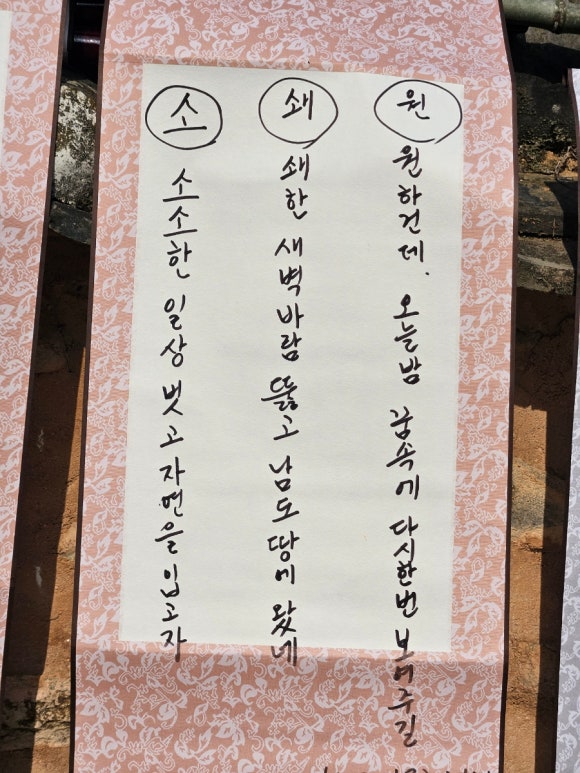 소
소소한 일상 벗고 자연을 입고자
쇄
쇄한 새벽바람 뚫고 남도 땅에 왔네
원
원하건데. 오늘밤 꿈속에 다시한번 보여주길